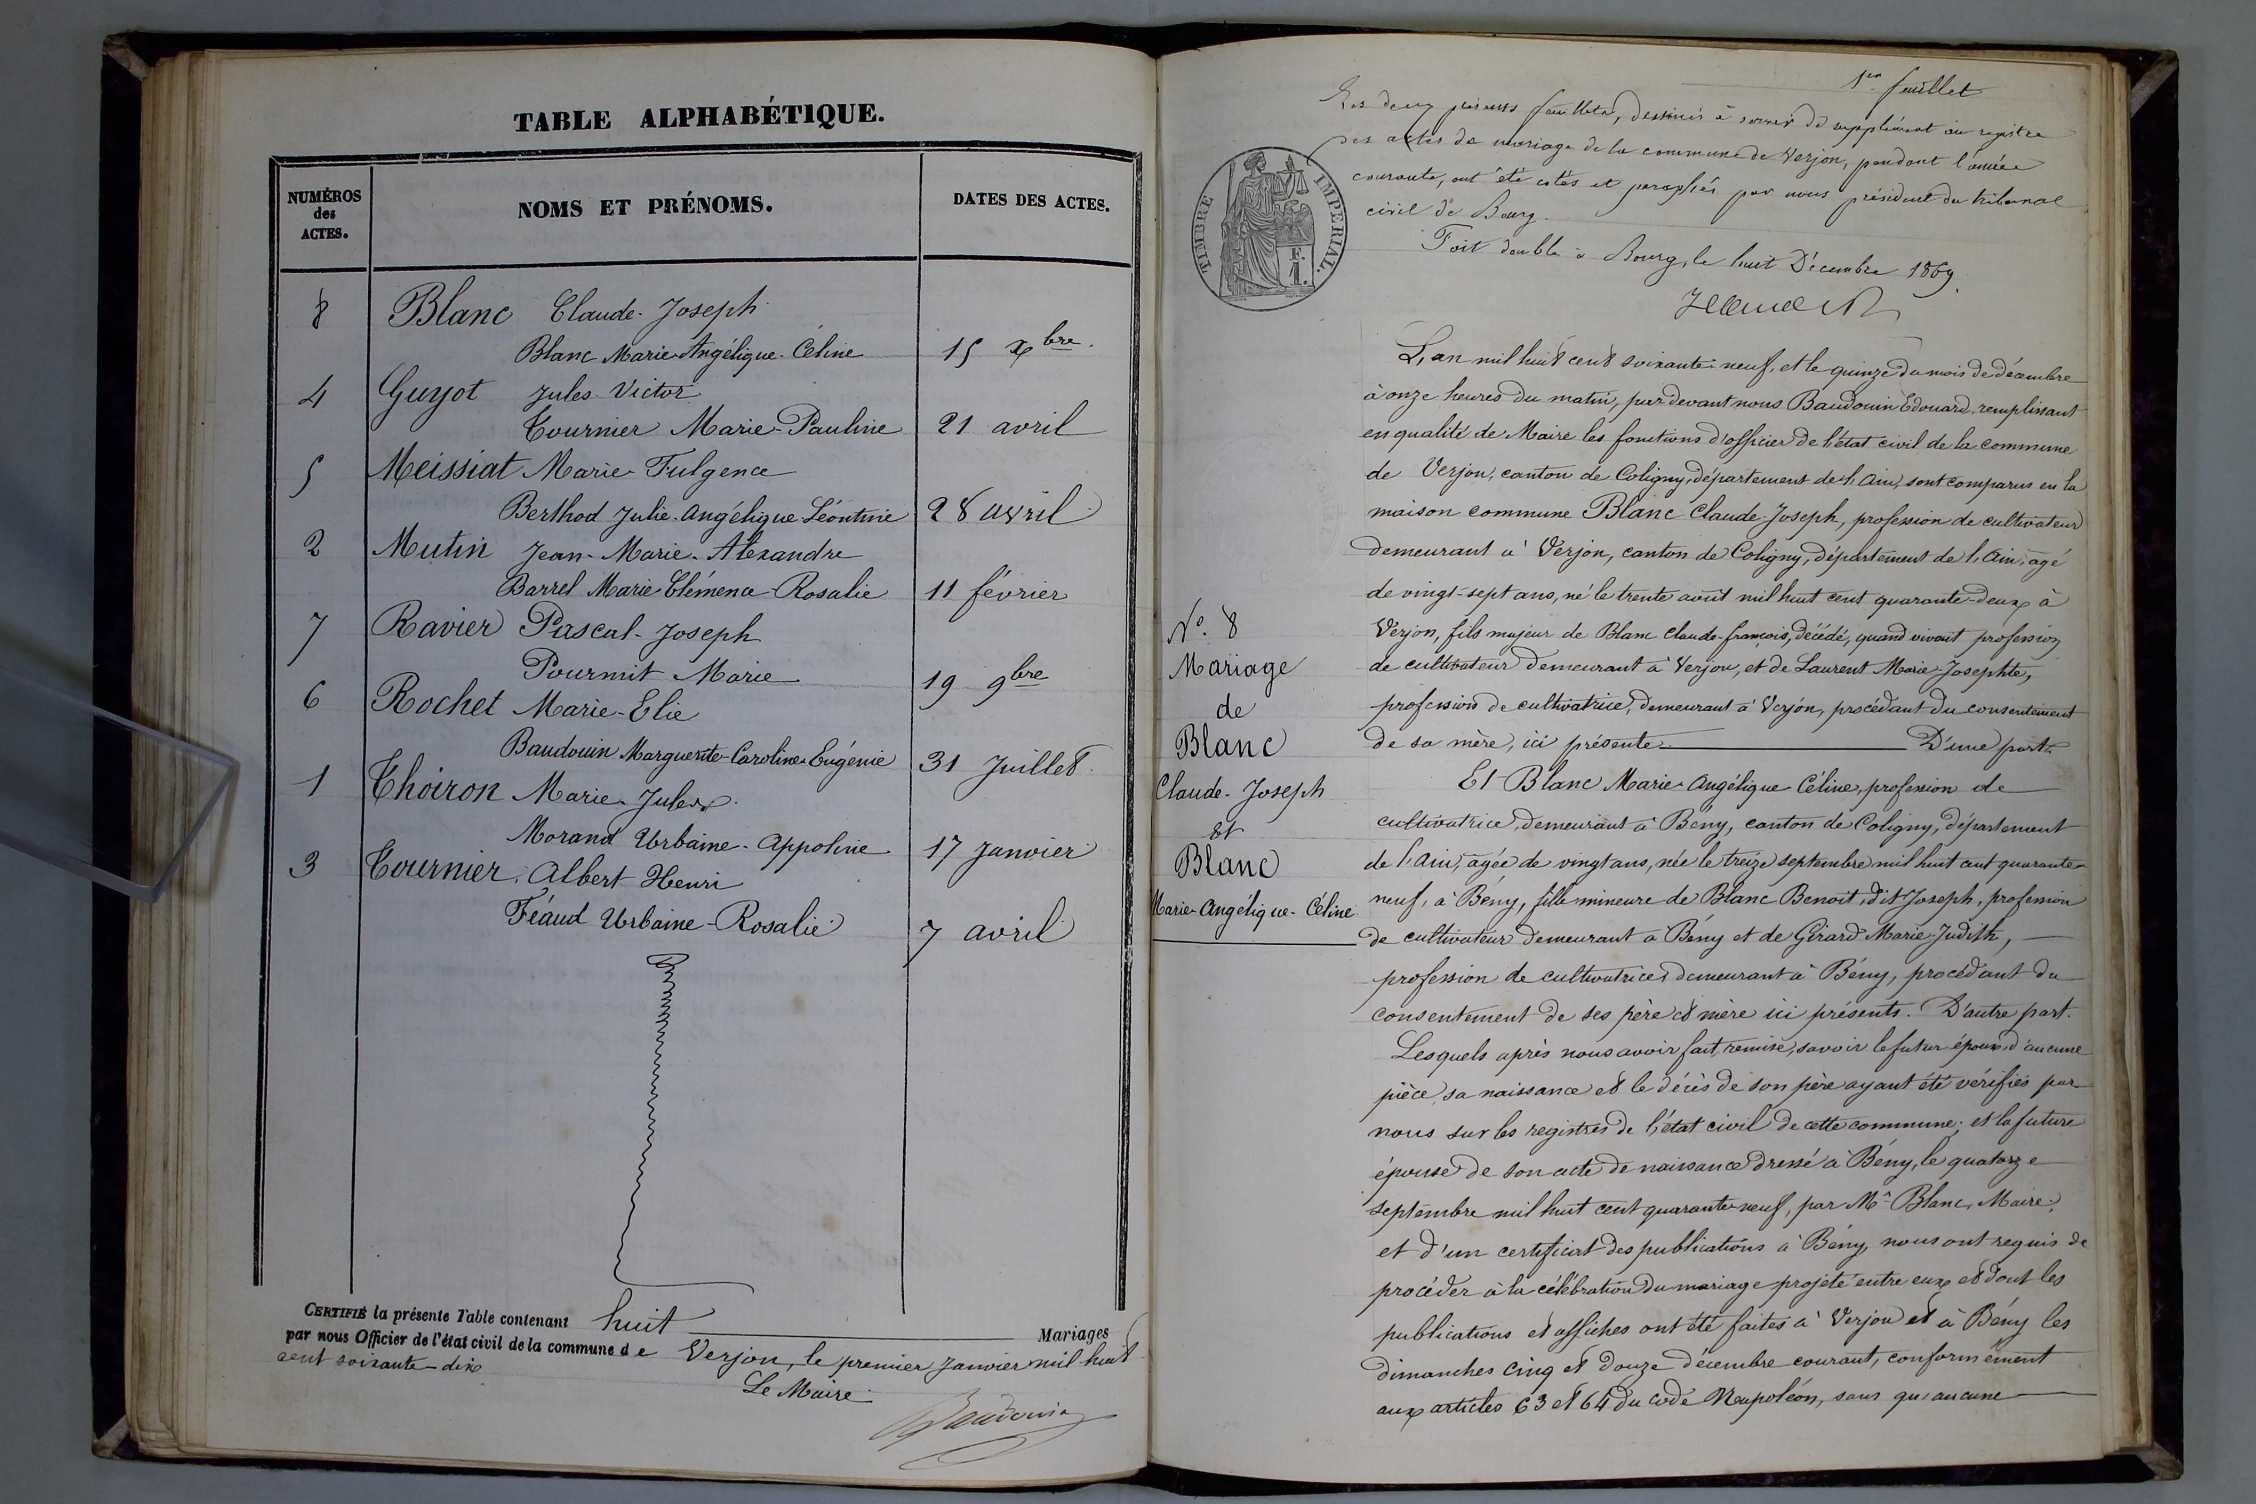 TABLE ALPHABÉTIQUE.
NUMÉROS
des
ACTES.
NOMS ET PRÉNOMS.
DATES DES ACTES.
8 Blanc Claude-Joseph
Blanc Marie-Angélique-Céline 15 xbre.
4 Guyot Jules-Victor
Tournier Marie-Pauline 21 avril
5 Meissiat Marie-Fulgence
Berthod Julie-Angélique Léontine 28 avril
2 Mutin Jean-Marie-Alexandre
Barrel Marie Clémence-Rosalie 11 février
7 Ravier Pascal-Joseph
Pourmit Marie 19 9bre
6 Rochet Marie-Elie
Baudouin Marguerite-Caroline-Eugénie 31 Juillet
1 Thoiron Marie-Jules
Morand Urbaine-Appoline 17 Janvier
3 Tournier, Albert Henri
Féaud Urbaine-Rosalie 7 avril
CERTIFIÉ la présente Table contenant huit Mariages
par nous Officier de l'état civil de la commune de Verjon, le premier Janvier mil huit
cent soixante-dix
Le Maire
Baudouin
1er feuillet
Les deux présents feuillets, destinés à servir de supplément au registre
des actes de mariage de la commune de Verjon, pendant l'année
courante, ont été cotés et paraphés par nous président du tribunal
civil de Bourg.
Fait double à Bourg, le huit Décembre 1869.
TIMBRE IMPÉRIAL.
F.
1.
L'an mil huit cent soixante-neuf, et le quinze du mois de décembre
à onze heures du matin, par devant nous Baudouin Edouard, remplissant
en qualité de Maire les fonctions d'officier de l'état civil de la commune
de Verjon, canton de Coligny, département de l'Ain, sont comparus en la
maison commune Blanc Claude-Joseph, profession de cultivateur
demeurant à Verjon, canton de Coligny, département de l'Ain, agé
de vingt-sept ans, né le trente août mil huit cent quarante-deux à
Verjon, fils majeur de Blanc Claude-françois, décédé, quand vivant profession
de cultivateur demeurant à Verjon, et de Laurent Marie-Josephte,
profession de cultivatrice, demeurant à Verjon, procédant du consentement
de sa mère, ici présente. D'une part.
Et Blanc Marie-Angélique Céline, profession de
cultivatrice, demeurant à Bény, canton de Coligny, département
de l'Ain, âgée de vingt ans, née le treize septembre mil huit cent quarante-
neuf, à Bény, fille mineure de Blanc Benoit, dit Joseph, profession
de cultivateur demeurant à Bény et de Girard Marie-Judith,
profession de cultivatrice demeurant à Bény, procédant du
consentement de ses père et mère ici présents. D'autre part.
Lesquels après nous avoir fait remise, savoir le futur époux, d'aucune
pièce, sa naissance et le décès de son père ayant été vérifiés par
nous sur les registres de l'état civil de cette commune; et la future
épouse de son acte de naissance dressé à Bény, le quatorze
septembre mil huit cent quarante-neuf, par Mr Blanc, Maire,
et d'un certificat des publications à Bény, nous ont requis de
procéder à la célébration du mariage projeté entre eux et dont les
publications et affiches ont été faites à Verjon et à Bény les
dimanches cinq et douze décembre courant, conformément
aux articles 63 et 64 du code Napoléon, sans qu'aucune
No. 8
Mariage
de
Blanc
Claude-Joseph
et
Blanc
Marie-Angélique-Céline